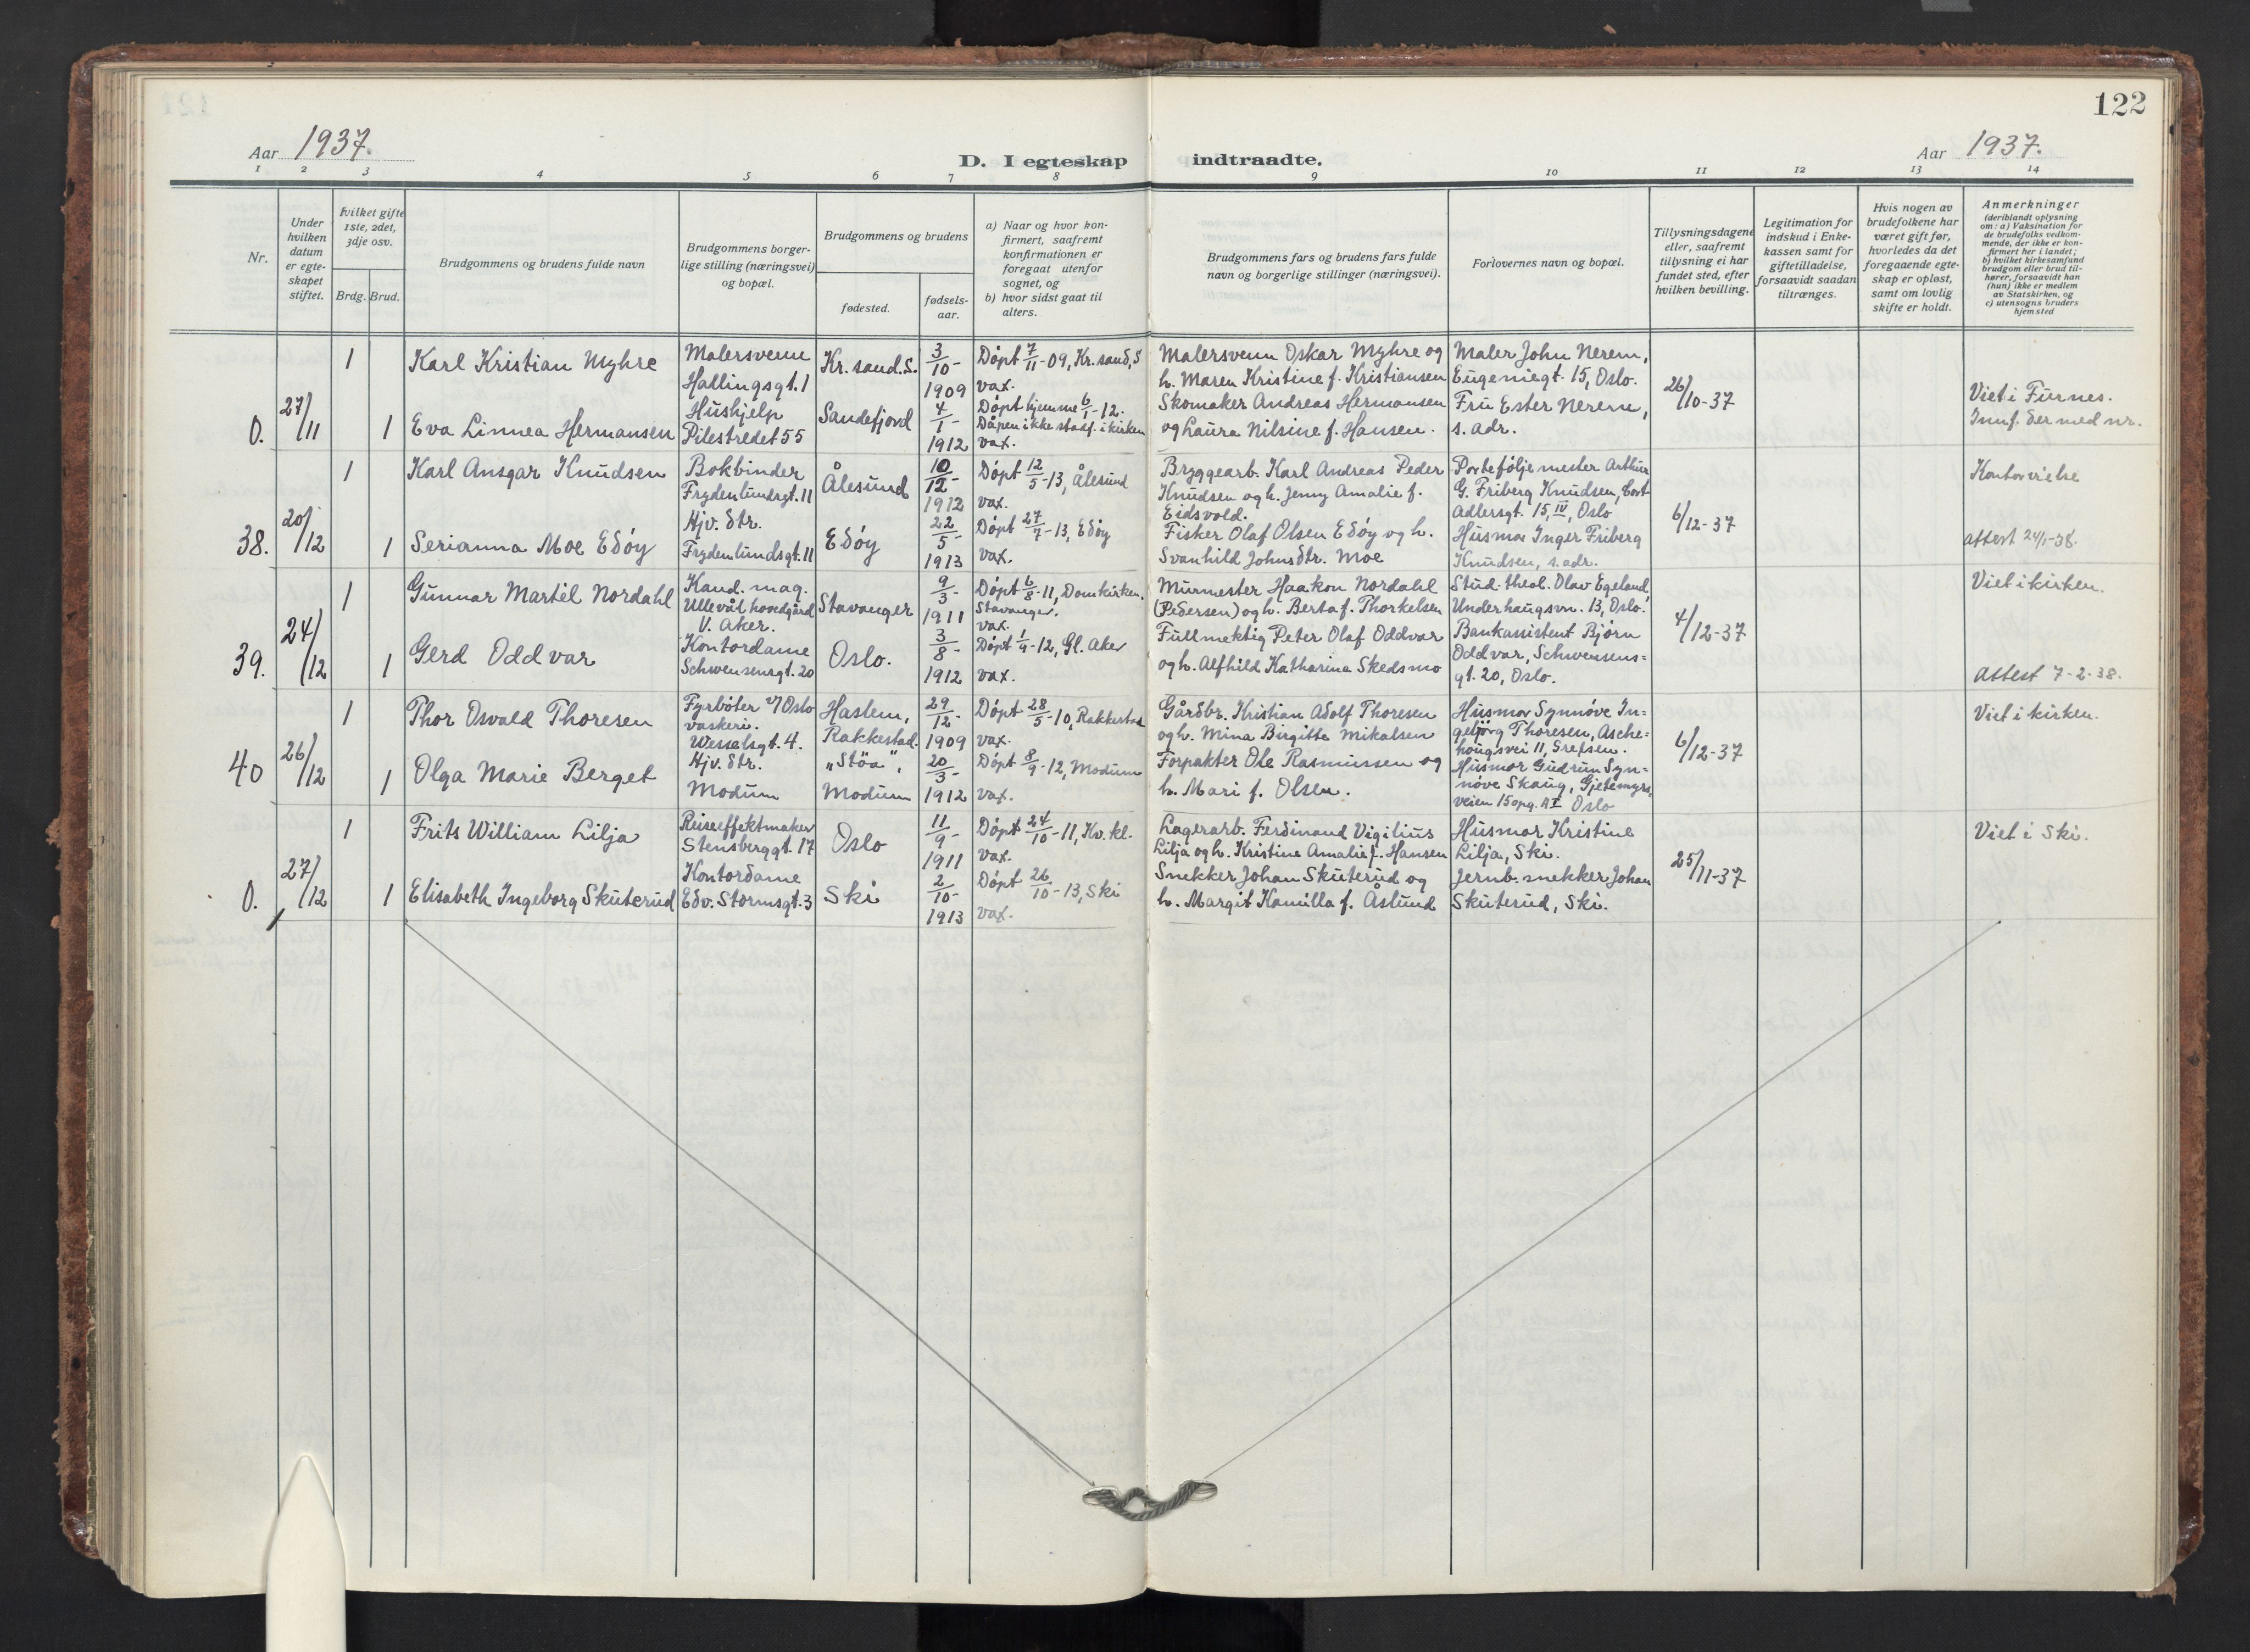 122
Aar 1937.
D. I egteskap indtraadte.
Aar 1937.
1 2 3 4 5 6 7 8 9 10 11 12 13 14
Nr.
Under
hvilken
datum
er egte-
skapet
stiftet.
hvilket gifte
1ste, 2det,
3dje osv.
Brdg. Brud.
Brudgommens og brudens fulde navn
Brudgommens borger-
lige stilling (næringsvei)
og bopæl.
Brudgommens og brudens
fødested.
fødsels-
aar.
a) Naar og hvor kon-
firmert, saafremt
konfirmationen er
foregaat utenfor
sognet, og
b) hvor sidst gaat til
alters.
Brudgommens fars og brudens fars fulde
navn og borgerlige stillinger (næringsvei).
Forlovernes navn og bopæl.
Tillysningsdagene
eller, saafremt
tillysning ei har
fundet sted, efter
hvilken bevilling.
Legitimation for
indskud i Enke-
kassen samt for
giftetilladelse,
forsaavidt saadan
tiltrænges.
Hvis nogen av
brudefolkene har
været gift før,
hvorledes da det
foregaaende egte-
skap er opløst,
samt om lovlig
skifte er holdt.
Anmerkninger
(deriblandt oplysning
om: a) Vaksination for
de brudefolks vedkom-
mende, der ikke er kon-
firmert her i landet;
b) hvilket kirkesamfund
brudgom eller brud til-
hører, forsaavidt han
(hun) ikke er medlem
av Statskirken, og
c) utensogns bruders
hjemsted
0.
27/11
1
Karl Kristian Myhre
Malersvenn
Hallingsgt. 1
Kr.sand.S.
3/10-
1909
Döpt 7/11-09, Kr.sand,S
vax.
Malersvenn Oskar Myhre og
h. Maren Kristine f. Kristiansen
Maler John Nerem,
Eugeniegt. 15, Oslo.
26/10-37
Viet i Furnes.
Innf. der med nr.
1
Eva Linnea Hermansen
Hushjelp
Pilestredet 55
Sandefjord
4/1-
1912
Döpt hjemme 6/1-12.
Dåpen ikke stadf. i kirken
vax.
Skomaker Andreas Hermansen
og Laura Nilsine f. Hansen.
Fru Ester Nerem,
s. adr.
38.
20/12
1
Karl Ansgar Knudsen
Bokbinder
Frydenlundsgt. 11
Ålesund
10/12-
1912
Döpt 12/5-13, Ålesund
vax.
Bryggearb. Karl Andreas Peder
Knudsen og h. Jenny Amalie f.
Eidsvold.
Portefölje mester Arthur
G. Friberg Knudsen, Cort
Adlersgt. 15, IV, Oslo
6/12-37
Kontorvielse
attest 24/1-38.
1
Serianna Moe Edöy
Hjv. dtr.
Frydenlundsgt. 11
Edöy
22/5-
1913
Döpt 27/7-13, Edöy
vax.
Fisker Olaf Olsen Edöy og h.
Svanhild Johnsdtr. Moe
Husmor Inger Friberg
Knudsen, s. adr.
39.
24/12
1
Gunnar Martël Nordahl
Kand. mag.
Ullevål hovedgård
V. Aker.
Stavanger
9/3-
1911
Döpt 6/8-11, Domkirken.
Stavanger.
vax.
Murmester Haakon Nordahl
(Pedersen) og h. Berta f. Thorkelsen
Stud. theol. Olav Egeland,
Underhaugsvn. 13, Oslo.
4/12-37
Viet i kirken.
attest 7-2-38.
1
Gerd Oddvar
Kontordame
Schwensensgt. 20
Oslo.
3/8-
1912
Döpt 1/9-12, Gl. Aker
vax.
Fullmektig Peter Olaf Oddvar
og h. Alfhild Katharina Skedsmo
Bankassistent Bjørn
Oddvar, Schwensens-
gt. 20, Oslo.
40
26/12
1
Thor Osvald Thoresen
Fyrböter v/ Oslo
vaskeri.
Wesselsgt. 4.
Haslem,
Rakkestad.
29/12-
1909
Döpt 28/5-10, Rakkestad
vax.
Gårdbr. Kristian Adolf Thoresen
og h. Mina Birgitte Mikalsen
Husmor Synnöve In=
gebjörg Thoresen, Asche-
hougsvei 11, Grefsen.
6/12-37
Viet i kirken.
1
Olga Marie Berget
Hjv. dtr.
Modum
"Stöa",
Modum
20/3-
1912
Döpt 8/9-12, Modum
vax.
Forpakter Ole Rasmussen og
h. Mari f. Olsen.
Husmor Gudrun Syn=
növe Skaug, Gjetemyrs
veien 15 opg. A I Oslo
0.
27/12
1
Frits William Lilja
Reiseeffektmaker
Stensberggt. 17
Oslo
11/9-
1911
Döpt 24/10-11, Kv. kl.
vax.
Lagerarb. Ferdinand Vigilius
Lilja og h. Kristine Amalie f. Hansen
Husmor Kristine
Lilja, Ski.
25/11-37
Viet i Ski.
1
Elisabeth Ingeborg Skuterud
Kontordame
Edv. Stormsgt. 3
Ski
2/10-
1913
Döpt 26/10-13, Ski
vax.
Snekker Johan Skuterud og
h. Margit Kamilla f. Åslund
Jernb. snekker Johan
Skuterud, Ski.